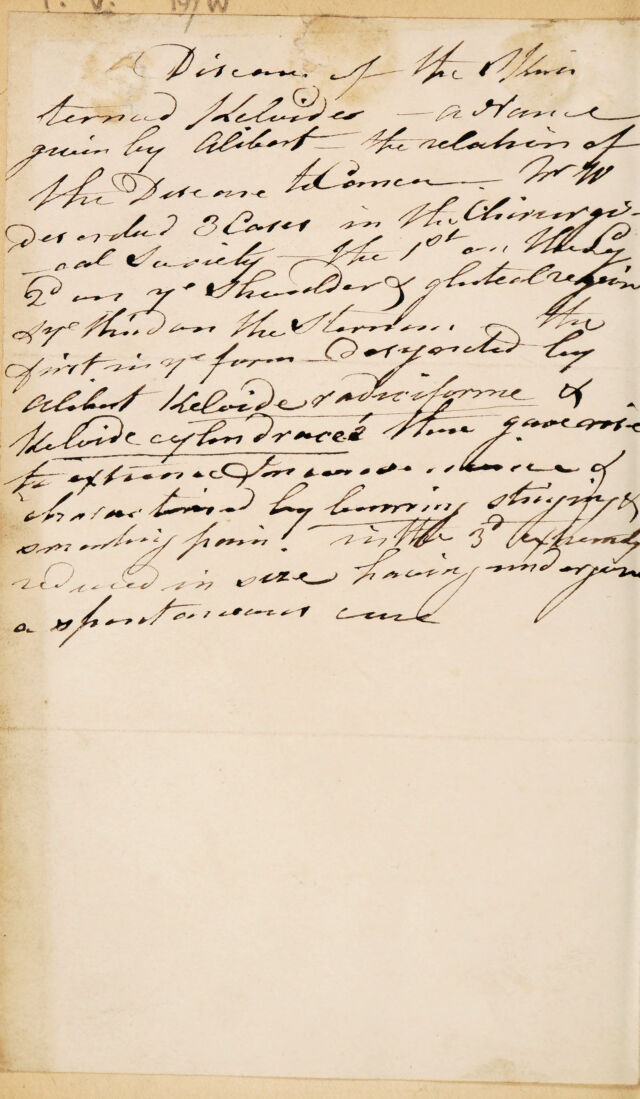 Disease of the Skin
termed Keloides — a Name
given by Alibert — the relation of
the Disease to Cancer — Mr W
described 3 Cases in the Chirurgi-
-cal Society — the 1st on the
2d on ye Shoulder & gluteal region
& ye third on the Sternum. the
first in ye form designated by
Alibert Keloide radiciforme &
Keloide cylindracée these gave rise
to extreme &
characterised by burning stinging &
smarting pain. in the 3d extremely
reduced in size having undergone
a spontaneous cure